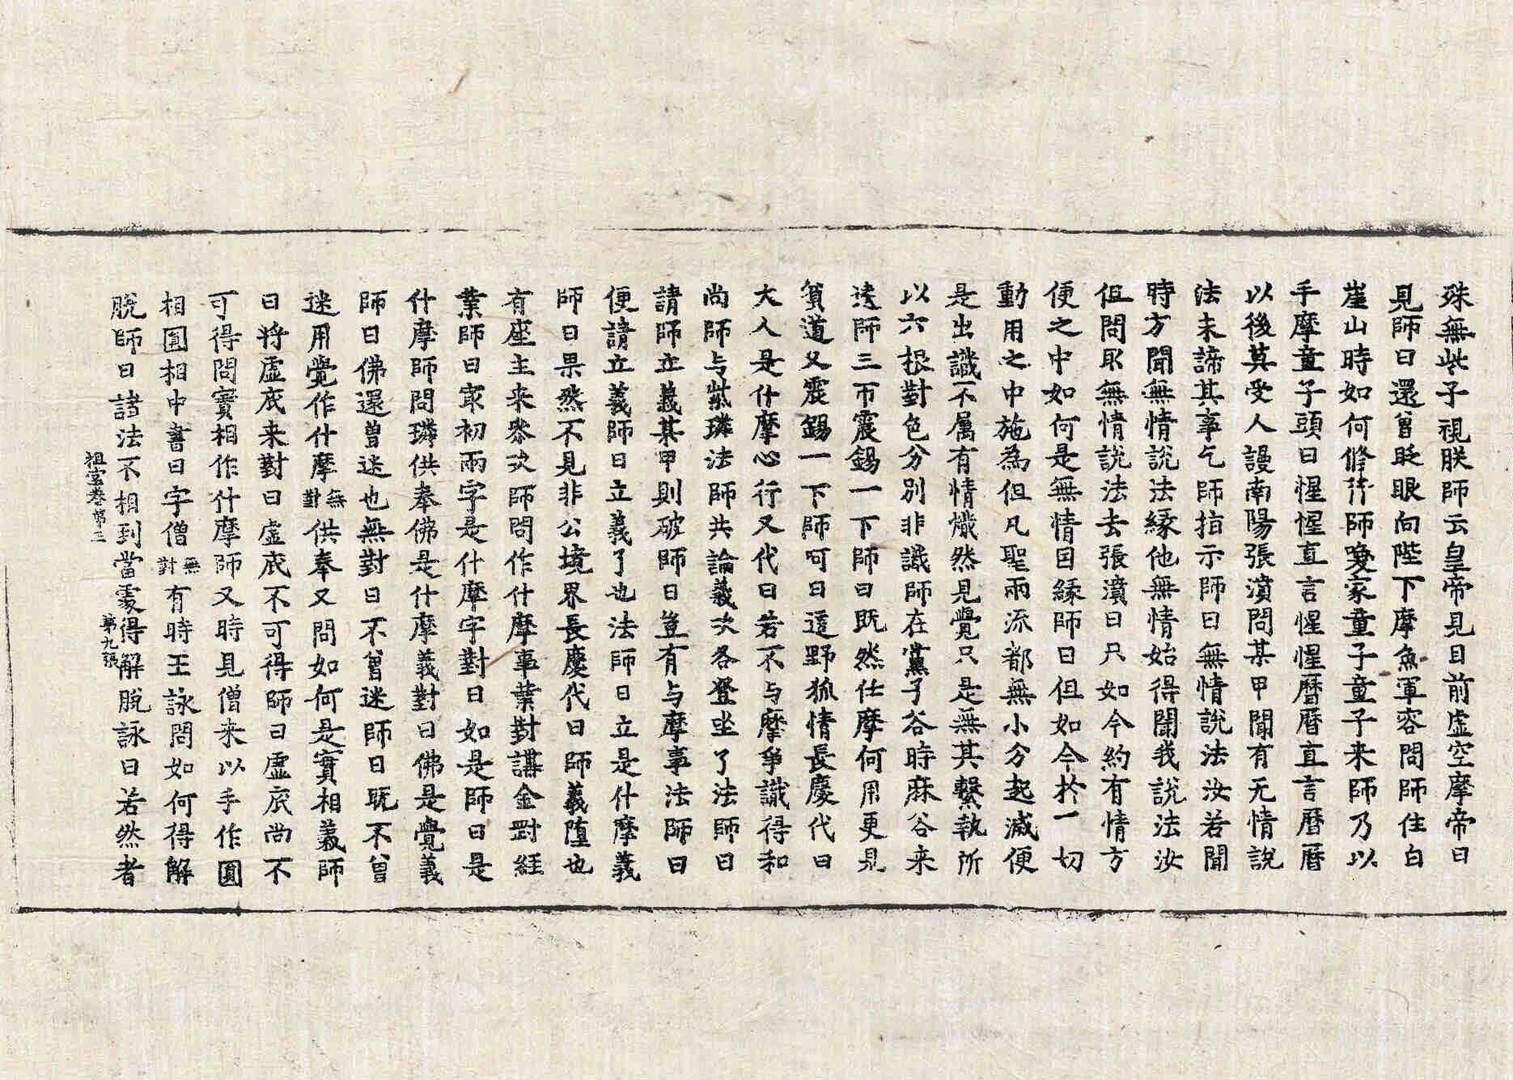 殊無些子視朕師云皇帝見目前虛空摩帝曰
見師曰還曾眨眼向陛下摩魚軍容問師住白
崖山時如何修行師喚家童子童子来師乃以
手摩童子頭曰惺惺直言惺惺曆曆直言曆曆
以後莫受人謾南陽張濆問某甲聞有无情說
法未諦其事乞師指示師曰無情說法汝若聞
時方聞無情說法緣他無情始得聞我說法汝
但問取無情說法去張濆曰只如今約有情方
便之中如何是無情因緣師曰但如今於一切
動用之中施為但凡聖兩流都無小分起滅便
是出識不属有情熾然見覺只是無其繫執所
以六根對色分別非識師在黨子谷時麻谷来
遶師三帀震錫一下師曰既然任摩何用更見
貧道又震錫一下師呵曰這野狐情長慶代曰
大人是什摩心行又代曰若不与摩爭識得和
尚師与紫璘法師共論義次各登坐了法師曰
請師立義某甲則破師曰豈有与摩事法師曰
便請立義師曰立義了也法師曰立是什摩義
師曰果然不見非公境界長慶代曰師義墮也
有座主来叅次師問作什摩事業對講金剛經
業師曰冣初兩字是什摩字對曰如是師曰是
什摩師問璘供奉佛是什摩義對曰佛是覺義
師曰佛還曾迷也無對曰不曾迷師曰既不曾
迷用覺作什摩無對供奉又問如何是實相義師
曰將虛底来對曰虛底不可得師曰虛底尚不
可得問實相作什摩師又時見僧来以手作圓
相圓相中書日字僧無對有時王詠問如何得解
脫師曰諸法不相到當處得解脫詠曰若然者
祖堂卷第三　第九張